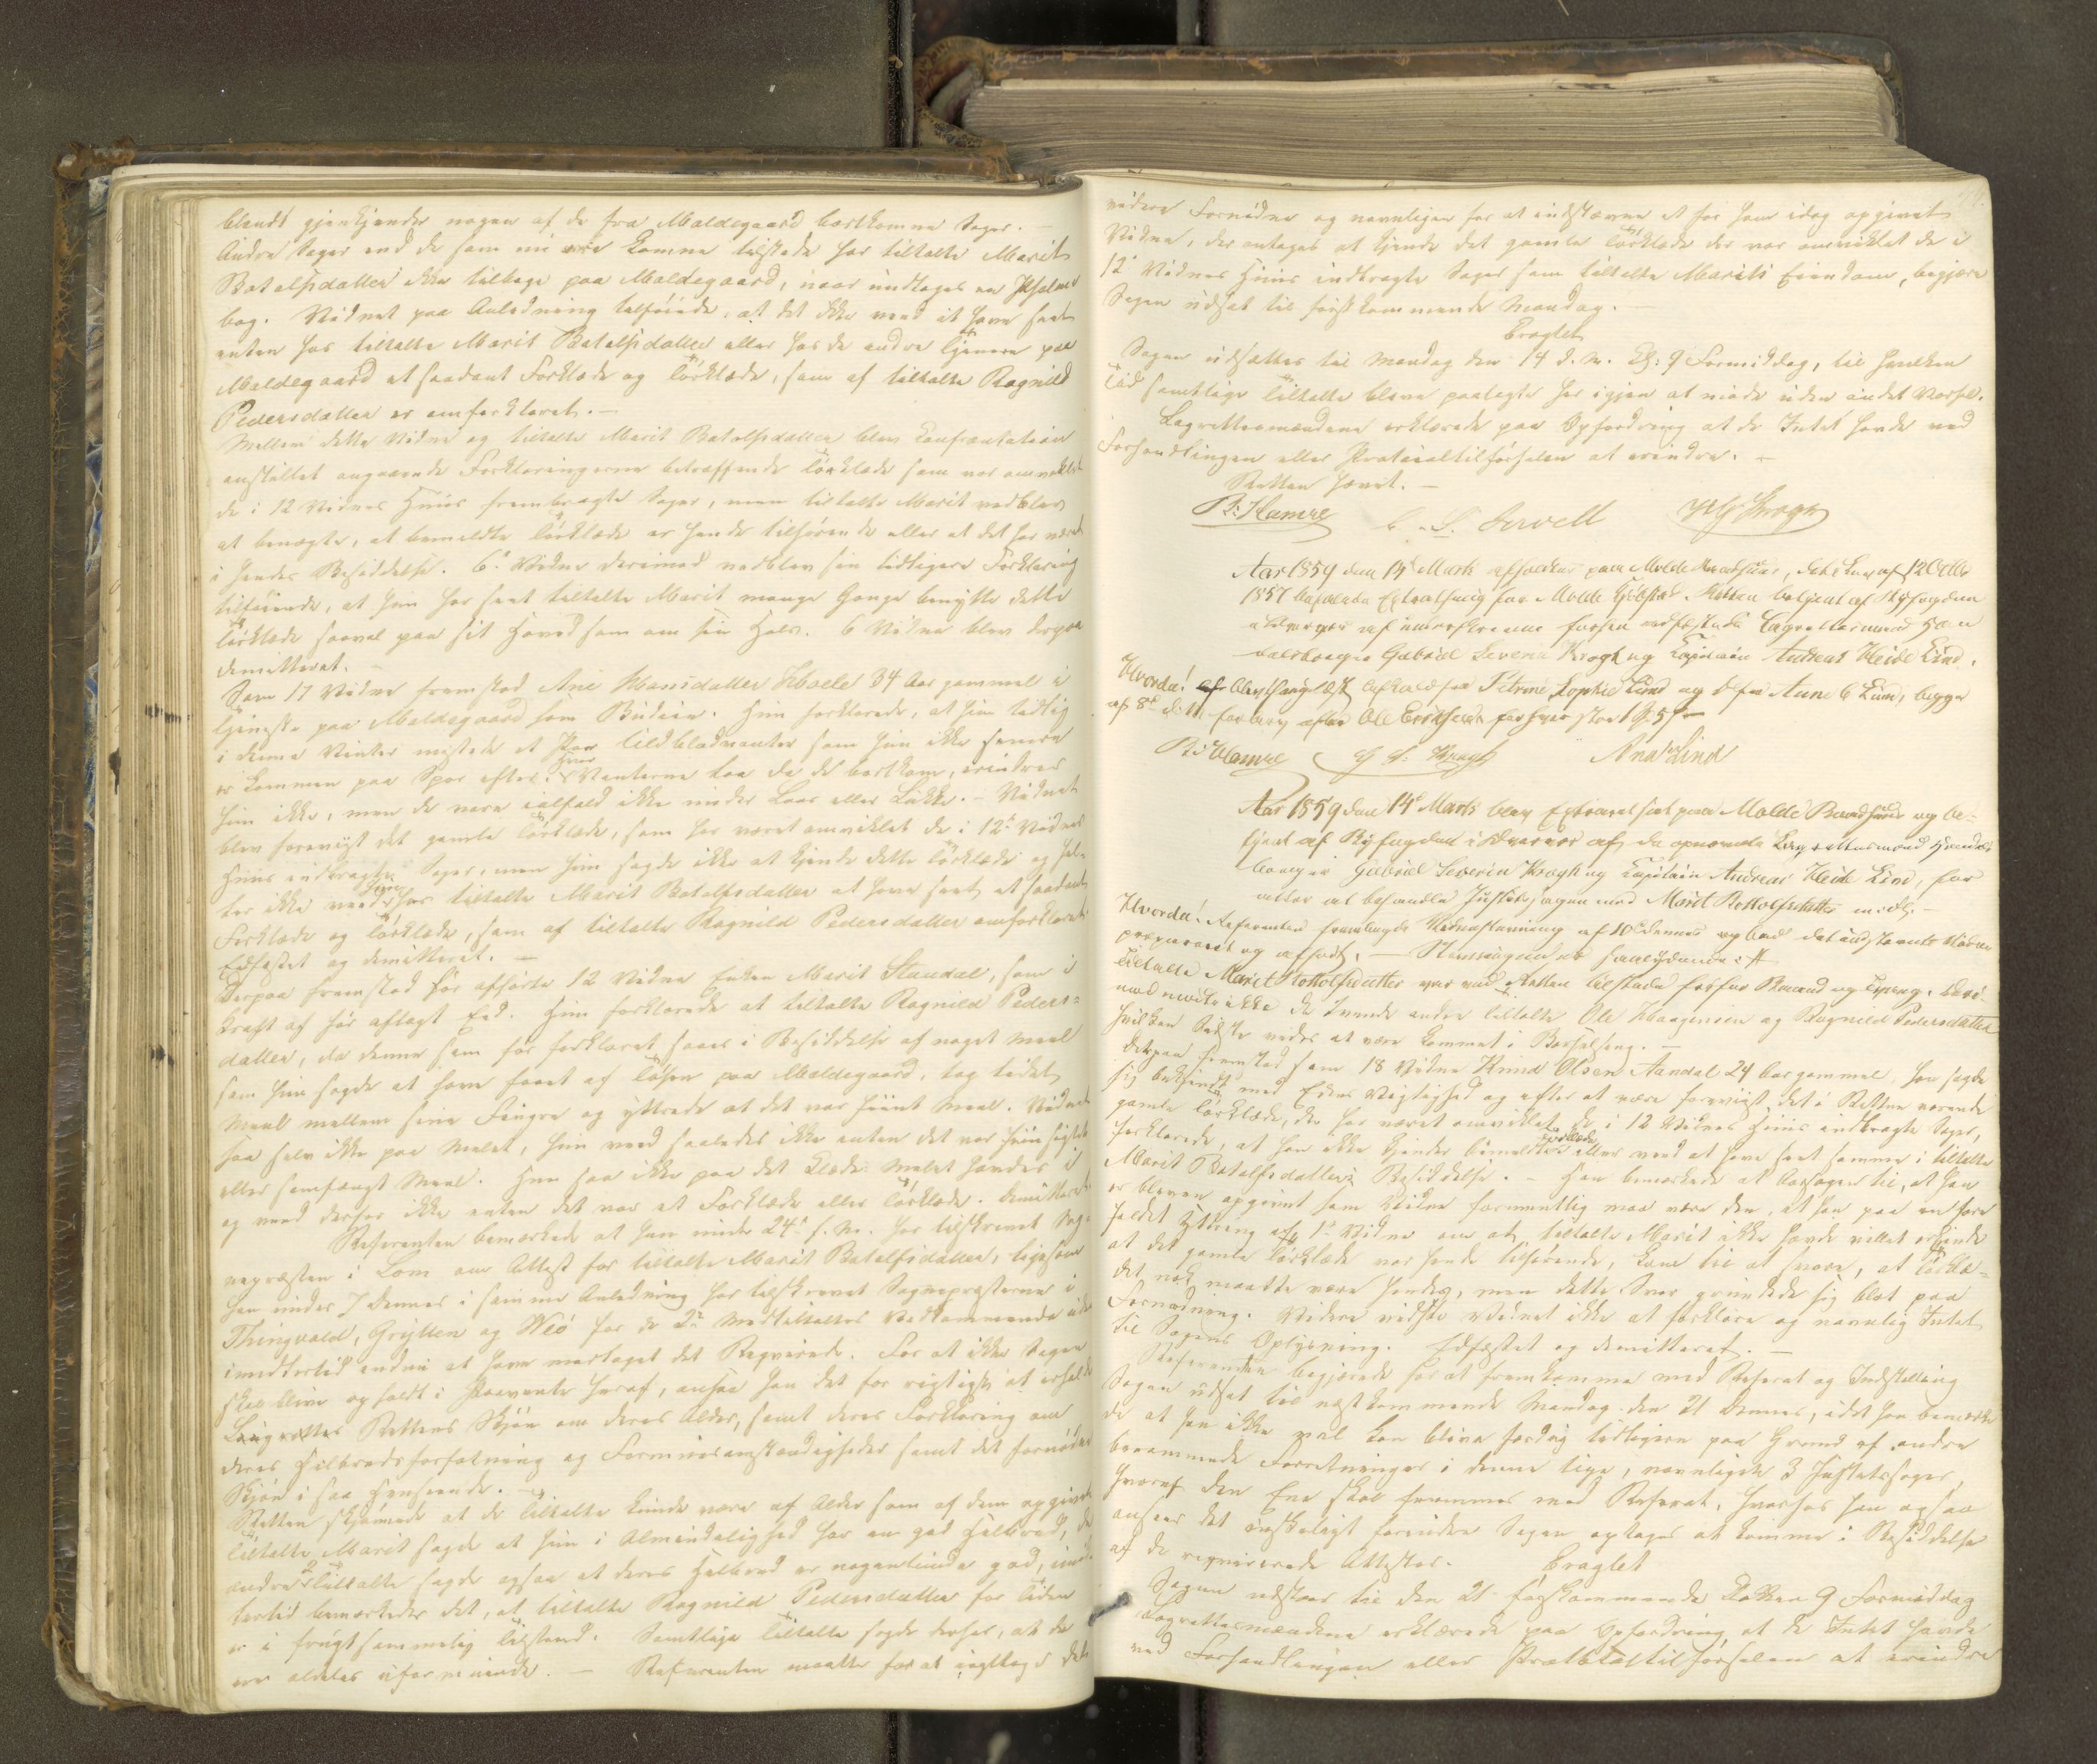 blandt gjenkjender nogen af de fra Moldegaard bortkomne Sager. —
Andre Sager end de som nu ere komne tilstede har tiltalte Marit
Botolfsdatter ikke tilbage paa Moldegaard, naar undtages en Psalme
bog. Vidnet paa Anledning tilføiede, at det ikke veed at have seet
enten hos tiltalte Marit Botolfsdatter eller hos de andre Tjenere paa
Moldegaard et saadant Forklæde og Tørklæde, som af tiltalte Ragnild
Pedersdatter er omforklaret. —
Mellem dette Vidne og tiltalte Marit Botolfsdatter blev Confrontation
anstillet angaaende Forklaringerne betræffende Tørklæde som var omviklet
de i 12 Vidnes Huus frembragte Sager, men tiltalte Marit vedblev
at benægte, at bemeldte Tørklæde er hende tilhørende eller at det har været
i hendes Besiddelse. 6te Vidne derimod vedblev sin tidligere Forklaring
tilføiende, at hun har seet tiltalte Marit mange Gange benytte dette
Tørklæde saavel paa sit Hoved som om sin Hals. 6 Vidne blev derpaa
demitteret. —
Som 17 Vidne fremstod Ane Hansdatter 34 Aar gammel i
Tjeneste paa Moldegaard som Budeie. Hun forklarede, at hun tidlig
i denne Vinter mistede et Par Uldblodvanter som hun ikke senere
er kommen paa Spor efter. Hvor Vanterne laa da de bortkom, erindrer
hun ikke, men de vare ialfald ikke under Laas eller Lukke. — Vidnet
blev foreviist det gamle Tørklæde, som har været omviklet de i 12te Vidnes
Huus indbragte Sager, men hun sagde ikke at kjende dette Tørklæde og hel-
ler ikke veed hun hos tiltalte Marit Botolfsdatter at have seet et saadant
Forklæde og Tørklæde, som af tiltalte Ragnild Pedersdatter omforklaret.
Edfæstet og demitteret. —
Derpaa fremstod før afhørte 12 Vidne Enken Marit Standal, som i
Kraft af før aflagt Eed. Hun forklarede at tiltalte Ragnild Peders-
datter, da denne som før forklaret saaes i Besiddelse af noget Meel
som hun sagde at have faaet af paa Moldegaard, tog lidet
Meel mellem sine Fingre og yttrede at det var fiint Meel. Vidnet
saa selv ikke paa Melet, hun veed saaledes ikke enten det var fiinsigtet
eller Meel. Hun saa ikke paa det Klæde Melet havdes i
og veed derfor ikke enten det var et Forklæde eller Tørklæde. Demitteret.
Referenten bemærkede at han under 24de f. M. har tilskrevet Sog-
nepræsten i Lom om Attest for tiltalte Marit Botolfsdatter, ligesom
han under 7 dennes i samme Anledning har tilskrevet Sognepræsterne i
Thingvold, Grytten og Veø for de 2de Medtiltaltes Vedkommende uden
imidlertid endnu at have modtaget det Reqvirerede. For at ikke Sagen
skal blive opholdt i Paavente heraf, ansaa han det for rigtigst at erholde
Rettens Skjøn om deres Alder, samt deres Forklaring om
deres Helbredsforfatning og Formuesomstændigheder samt det fornødne
Skjøn i saa Henseende. —
Retten skjønnede at de tiltalte kunde være af Alder som af dem opgivet.
Tiltalte Marit sagde at hun i Almindelighed har en god Helbred, de
andre 2 tiltalte sagde ogsaa at deres Helbred er nogenlunde god, imid-
lertid bemærkedes det, at tiltalte Ragnild Pedersdatter for Tiden
er i frugtsommelig Tilstand. Samtlige tiltalte sagde derhos, at de
ere aldeles uformuende. — Referenten maatte for at iagttage det
videre Fornødne og navnligen for at indstævne et for ham idag opgivet
Vidne, der antages at kjende det gamle Tørklæde der var omviklet de i
12te Vidnes Huus indbragte Sager som tiltalte Marits Eiendom, begjære
Sagen udsat til førstkommende Mandag.
Eragtet
Sagen udsættes til Mandag den 14 d. M. Kl: 9 Formiddag, til hvilken
Tid samtlige tiltalte bleve paalagte her igjen at møde uden andet Varsel.
Lagrettesmændene erklærede paa Opfordring at de Intet havde ved
Forhandlingen eller Protocoltilførselen at erindre. —
Retten hævet. —
R. Hamre C. S. Servell Krogh
Aar 1859 den 14de Marts afholdtes paa Molde Raadhuus, af 12 Octbr
1857 befalede Extrathing for Molde Kjøbstad. Retten betjent af Byfogden
i Overvær af underskrevne forhen edfæstede Lagrettesmænd Han-
delsborger Gabriel Severin Krogh og Kapitain Andreas Heide Lind.
Hvorda! blev Petrine Sophie Lind og Anne C Lind, begge
af 8de efter Ole Eriksen
R. Hamre G. S. Krogh And. Lind
Aar 1859 den 14de Marts blev Extraret sat paa Molde Raadhuus og be-
tjent af Byfogden i Overvær af de opnævnte Lagrettesmænd Handels-
borger Gabriel Severin Krogh og Kapitain Andreas Heide Lind, for
at behandle Justitssagen mod Marit Botolfsdatter m. fl. —
Hvorda! Referenten fremlagde Vidnestævning af 10de dennes og bad det indstævnte Vidne
præparet og afhørt. — Stævningen er saalydende: #
Tiltalte Marit Botolfsdatter var ved Retten tilstede fri for Baand og Tvang. Deri-
mod mødte ikke de tvende andre tiltalte Ole Haagensen og Ragnild Pedersdatter
hvilken Sidste vides at være kommet i Barselseng. —
Derpaa fremstod som 18 Vidne Knud Olsen Aandal 24 Aar gammel. Han sagde
sig bekjendt med Edens Vigtighed og efter at være foreviist det i Retten værende
gamle Tørklæde, der har været omviklet de i 12 Vidnes Huus indbragte Sager,
forklarede, at han ikke kjender bemeldte Tørklæde eller veed at have seet samme i tiltalte
Marit Botolfsdatters Besiddelse. — Han bemærkede at Aarsagen til, at han
er bleven opgivet som Vidne formeentlig maa være den, at han paa en fore
faldet Yttring af 1ste Vidne om at tiltalte Marit ikke havde villet erkjende
at det gamle Tørklæde var hende tilhørende, kom til at svare, at Tørklæ-
det nok maatte være hendes, men dette Svar grundede sig blot paa
Formodning. Videre vidste Vidnet ikke at forklare og navnlig Intet
til Sagens Oplysning. Edfæstet og demitteret. —
Referenten begjærede for at fremkomme med Referat og Indstilling
Sagen udsat til næstkommende Mandag den 21 dennes, idet han bemærke
de at han ikke vel kan blive færdig tidligere paa Grund af andre
berammede Forretninger i denne Uge, navnligen 3 Justitssager,
hvoraf den Ene skal fremmes med Referat, hvorhos han ogsaa
ansaae det ønskeligt forinden Sagen optages at komme i Besiddelse
af de reqvirerede Attester.
Eragtet
Sagen udstaar til den 21 førstkommende Klokken 9 Formiddag
Lagrettesmændene erklærede paa Opfordring at de Intet havde
ved Forhandlingen eller Protocoltilførselen at erindre